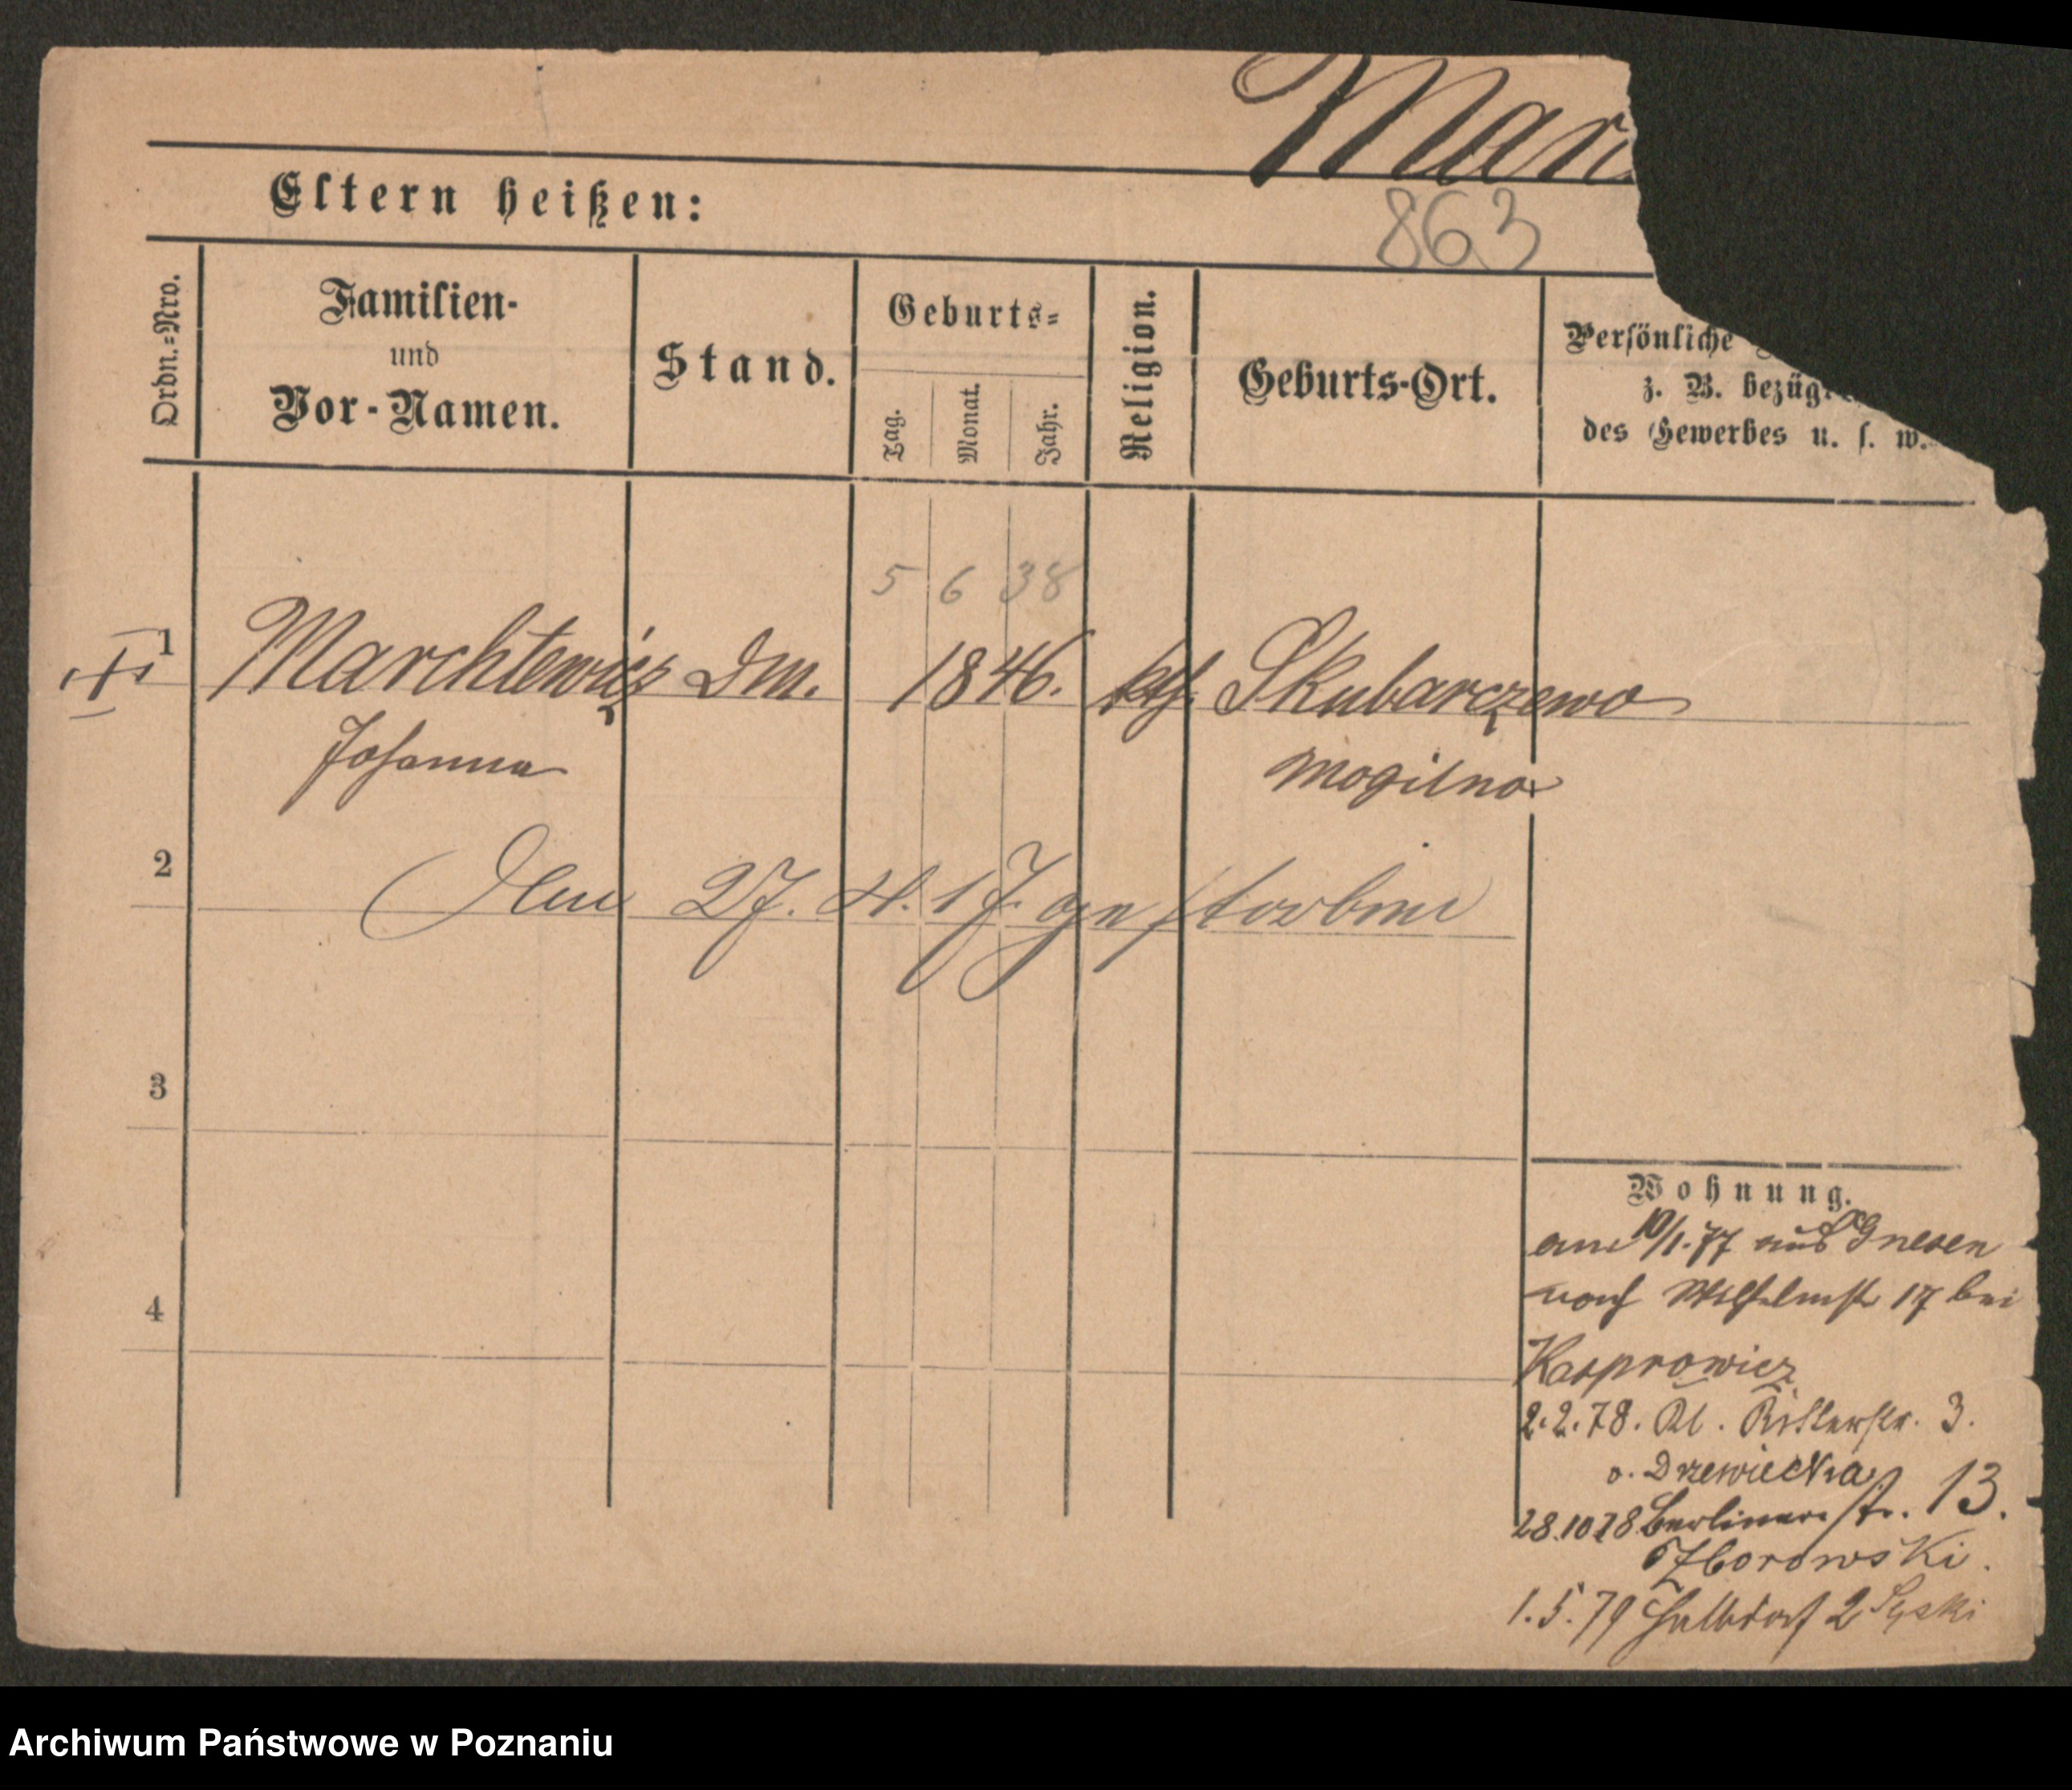 Mar
Eltern heißen:
863
Ordn.-Nro.
Familien-
und
Vor-Namen.
Stand.
Geburts-
Tag.
Monat.
Jahr.
Religion.
Geburts-Ort.
Persönliche
z. B. bezüg
des Gewerbes u. s. w.
5 6 38
1 Marchlewicz Dm. 1846. kth. Skubarczewo
Johanna Mogilno
2
Den 27. 4. 17. gestorben
3
4
Wohnung.
am 10/1.77 aus Gnesen
nach Wilhelmstr 17 bei
Kasprowicz
2.2.78. Kl. Ritterstr. 3.
v. Drzewiecka
28.10 78 Berliner str. 13.
Zborowski.
1.5.79 Halbdorf 2
Archiwum Państwowe w Poznaniu